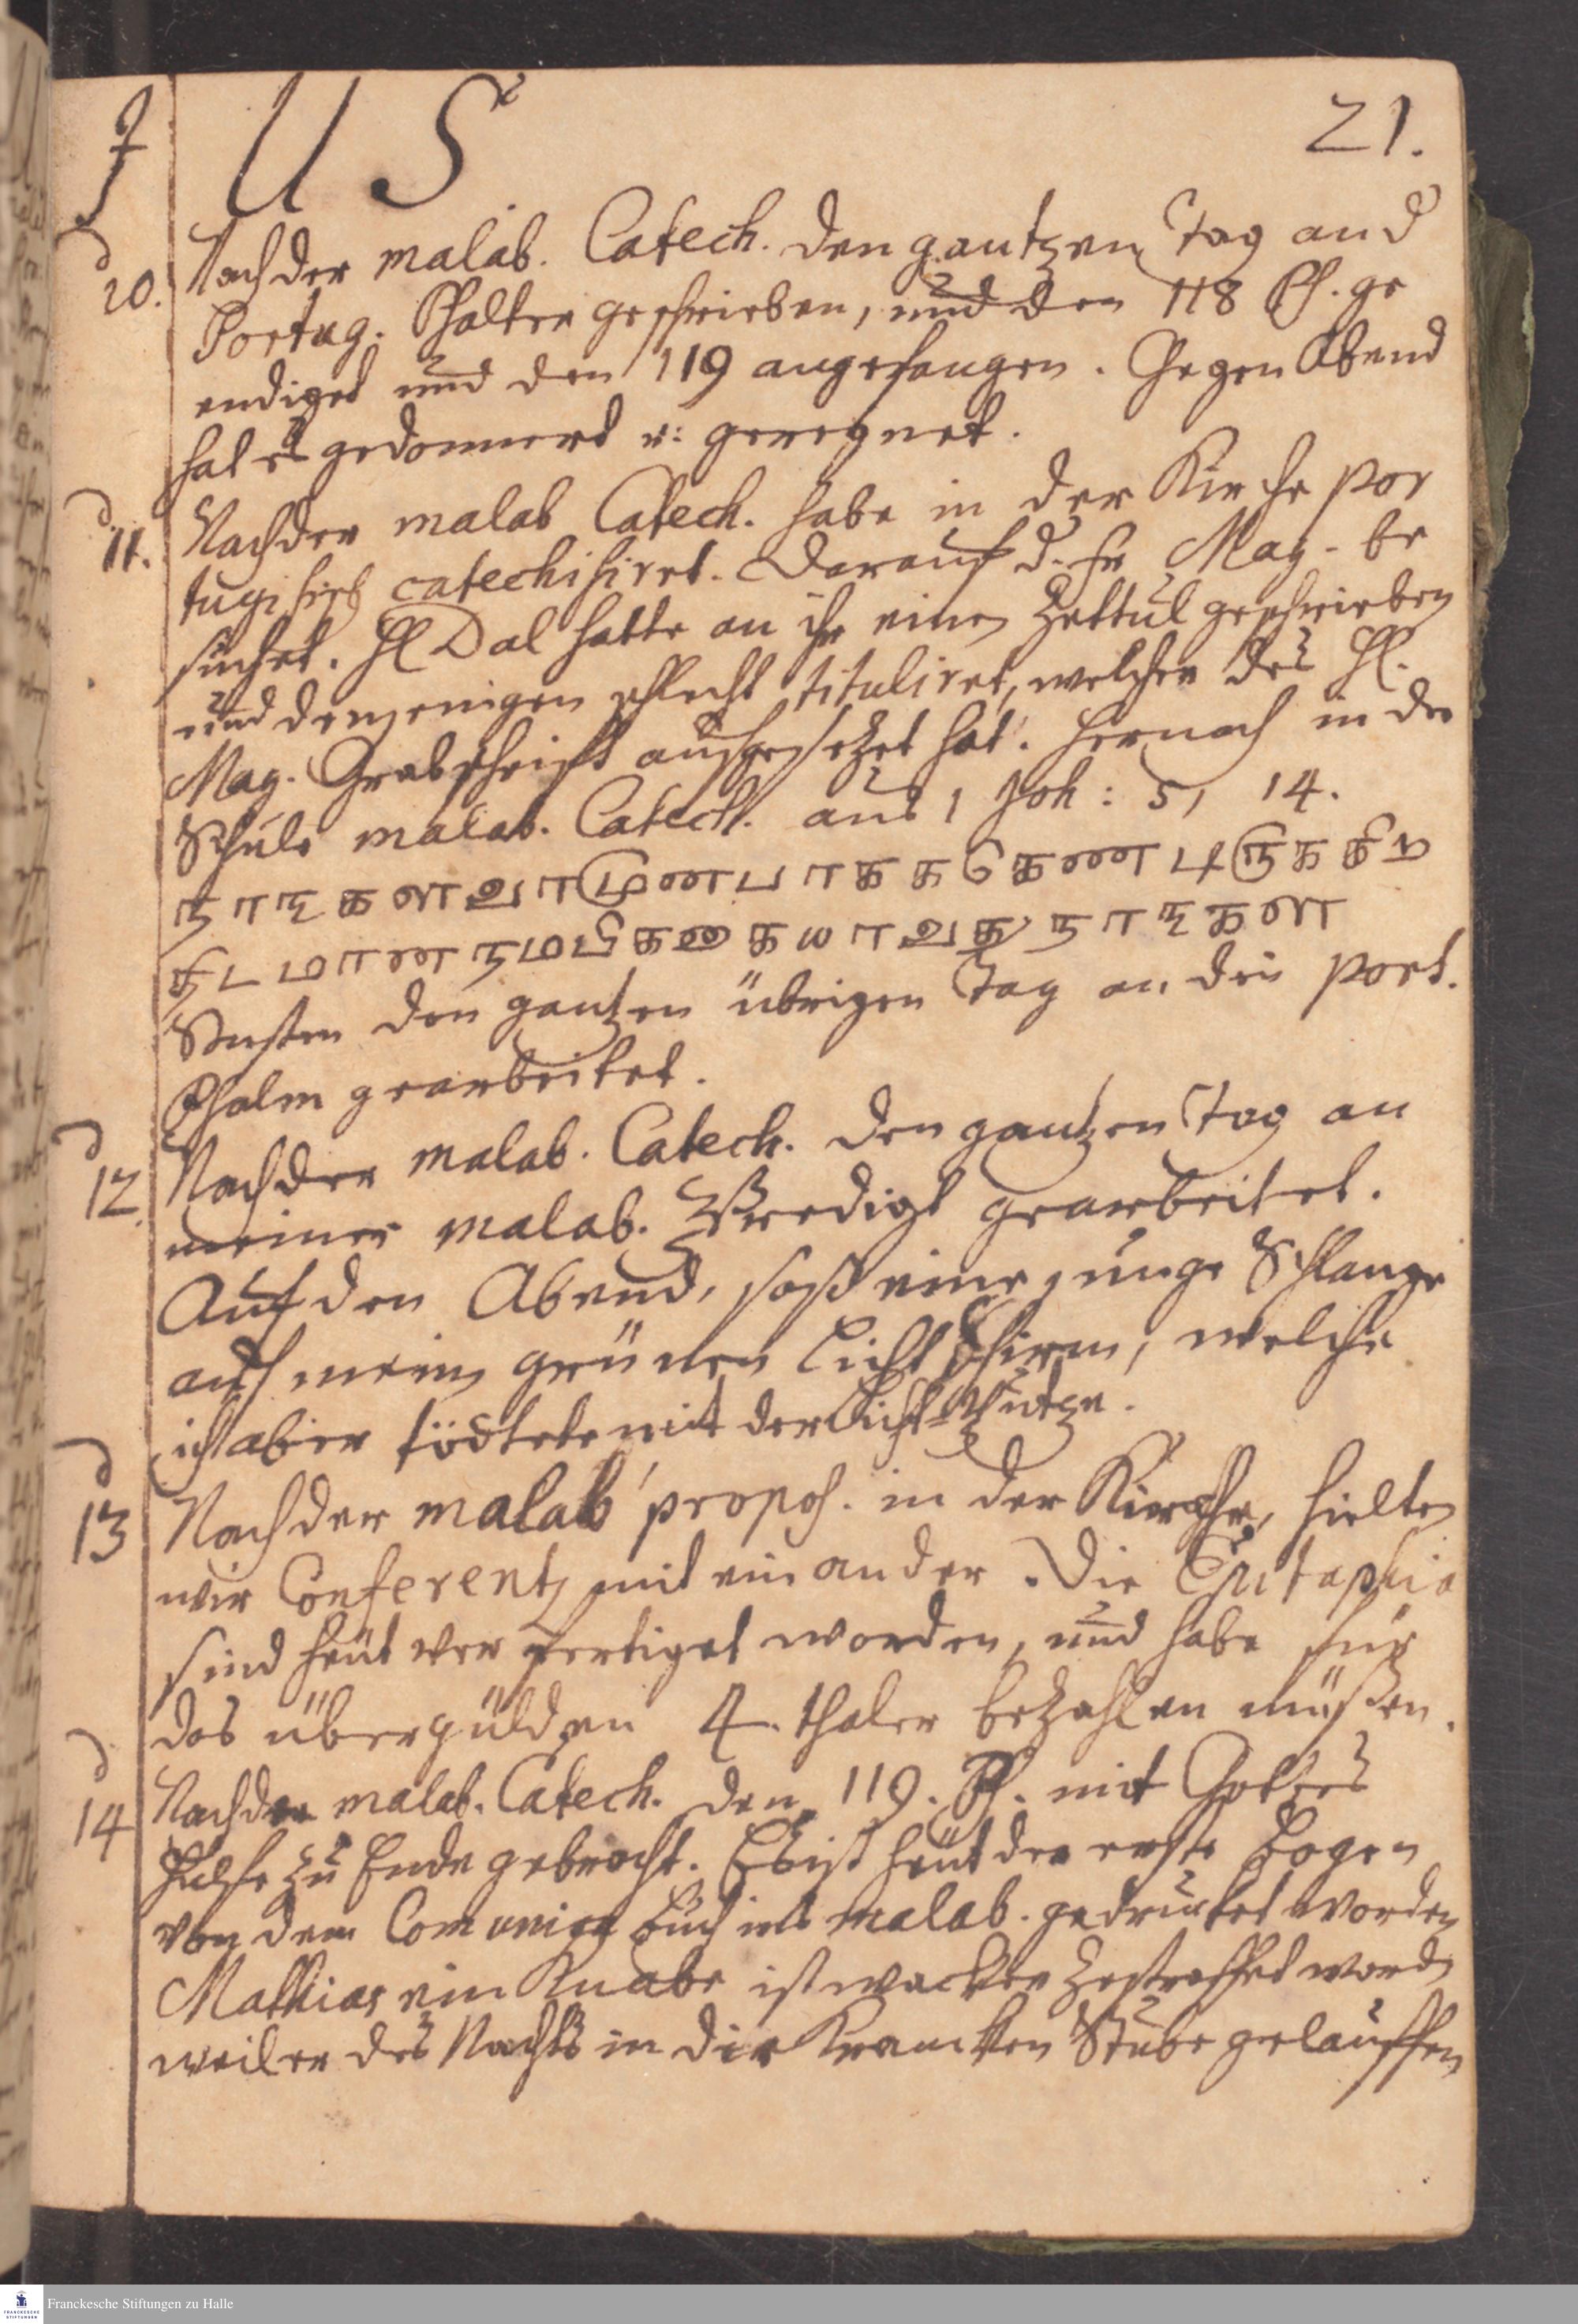 J U S 21.
d 10. Nach der malab. Catech. den gantzen Tag an d
Portug. Psalter geschrieben, und den 118 Ps. ge
endiget und den 119 angefangen. Gegen Abend
hat es gedonnert u: geregnet.
d 11. Nach der malab Catech. habe in der Kirche por
tugisisch catechisiret. Darauf d. Fr Mag. be
suchet. H Dal hatte an ihr einen Zettul geschrieben
und denjenigen schlecht tituliret, welcher des H.
Mag. Grabschrifft aufgesetzet hat. Hernach in der
Schule malab. Catech. aus 1 Joh: 5, 14.
Sonsten den gantzen übrigen Tag an den port.
Psalm gearbeitet.
d 12. Nach der malab. Catech. den gantzen Tag an
meiner malab. Predigt gearbeitet.
Auf den Abend, saß eine junge Schlange
auf mein grünen Licht Schirm, welche
ich aber tödtete mit der Licht-Putze.
d 13 Nach der malab propos. in der Kirche, hielten
wir Conferentz mit einander. Die Epitaphia
sind heut verfertiget worden, und habe für
das übergülden 4. thaler bezahlen müßen.
d 14 Nach der malab. Catech. den 119. Ps. mit Gottes
Hülfe zu Ende gebracht. Es ist heut der erste Bogen
von dem Comunion Buch ins malab. gedrucket worden
Mathias ein Knabe ist wacker gestraffet word
weil er des Nachts in die Krancken Stube gelauffen